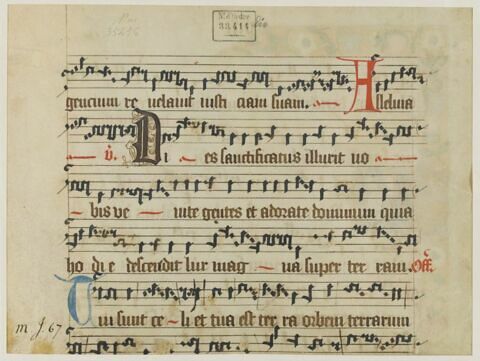 33414
gencium re velavit iusti ciam suam. Alleluia
v. Di es sanctificatus illuxit no
bis ve nite gentes et adorate dominum quia
ho di e descendit lux mag na super ter ram. Off.
Tui sunt ce li et tua est ter ra orbem terrarum
m J. 67